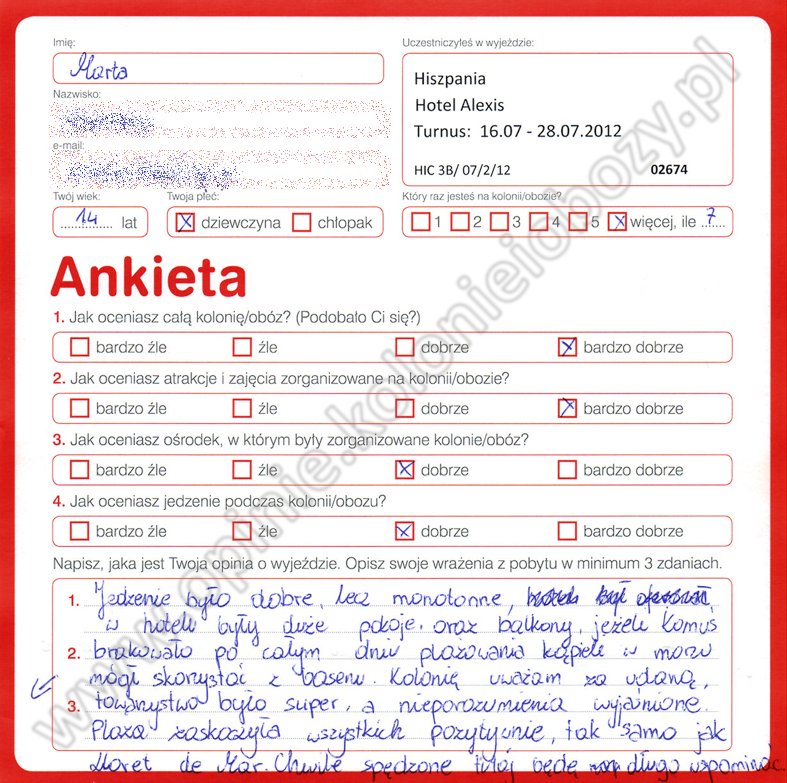 Imię:
Marta
Nazwisko:
e-mail:
Twój wiek:
14 lat
Twoja płeć:
dziewczyna chłopak
Uczestniczyłeś w wyjeździe:
Hiszpania
Hotel Alexis
Turnus: 16.07 - 28.07.2012
HIC 3B/ 07/2/12 02674
Który raz jesteś na kolonii/obozie?
1 2 3 4 5 więcej, ile 7
Ankieta
1. Jak oceniasz całą kolonię/obóz? (Podobało Ci się?)
bardzo źle źle dobrze bardzo dobrze
2. Jak oceniasz atrakcje i zajęcia zorganizowane na kolonii/obozie?
bardzo źle źle dobrze bardzo dobrze
3. Jak oceniasz ośrodek, w którym były zorganizowane kolonie/obóz?
bardzo źle źle dobrze bardzo dobrze
4. Jak oceniasz jedzenie podczas kolonii/obozu?
bardzo źle źle dobrze bardzo dobrze
Napisz, jaka jest Twoja opinia o wyjeździe. Opisz swoje wrażenia z pobytu w minimum 3 zdaniach.
1. Jedzenie było dobre, lecz monotonne,
w hotelu były duże pokoje, oraz balkony, jeżeli komuś
2. brakowało po całym dniu plażowania kąpieli w morzu
mógł skorzystać z basenu. Kolonię uważam za udaną,
3. towarzystwo było super, a nieporozumienia wyjaśnione.
Plaża zaskoczyła wszystkich pozytywnie, tak samo jak
Lloret de Mar. Chwile spędzone tutaj będę długo wspominać.
www.opinie.kolonieiobozy.pl